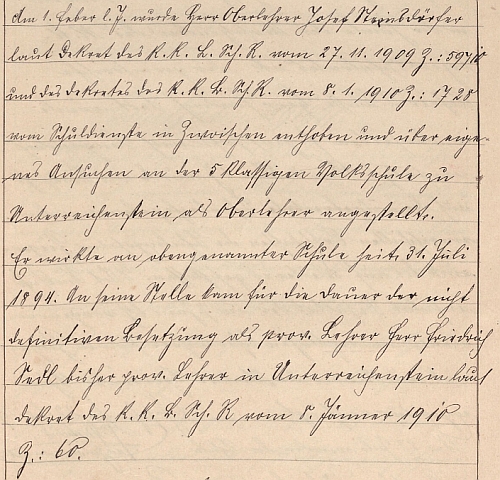 Am 1. Feber l. J. wurde Herr Oberlehrer Josef Steinsdörfer
laut Dekret des K. K. L. Sch. R. vom 27. 11. 1909 Z.: 59710
und des Dekretes des K. K. B. Sch. R. vom 8. 1. 1910 Z.: 1728
vom Schuldienste in Zwoischen enthoben und über eige-
nes Ansuchen an der 5 klassigen Volksschule zu
Unterreichenstein als Oberlehrer angestellt.
Er wirkte an obengenannter Schule seit 31. Juli
1894. An seine Stelle kam für die Dauer der nicht
definitiven Besetzung als prov. Lehrer Herr Friedrich
Sedl bisher prov. Lehrer in Unterreichenstein laut
Dekret des K. K. B. Sch. R. vom 8. Jänner 1910
Z.: 60.